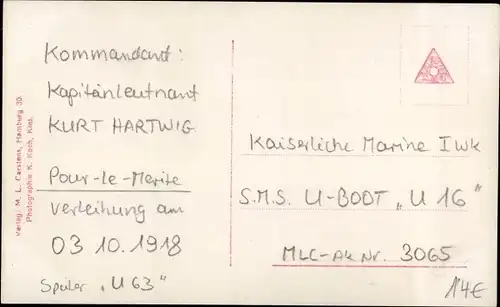 Kommandant:
Kapitänleutnant
KURT HARTWIG
Pour-le-Merite
Verleihung am
03 10. 1918
Später „U 63"
Verlag: M. L. Carstens, Hamburg 30.
Photographie K. Koch, Kiel.
Kaiserliche Marine I Wk
S.M.S. U-BOOT „U 16"
MLC-AK Nr. 3065
14€